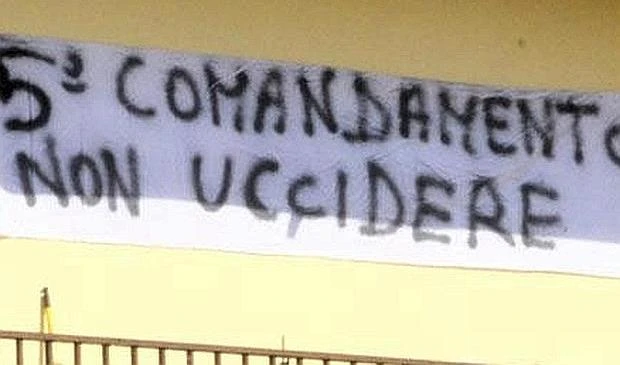 5º COMANDAMENTO
NON UCCIDERE